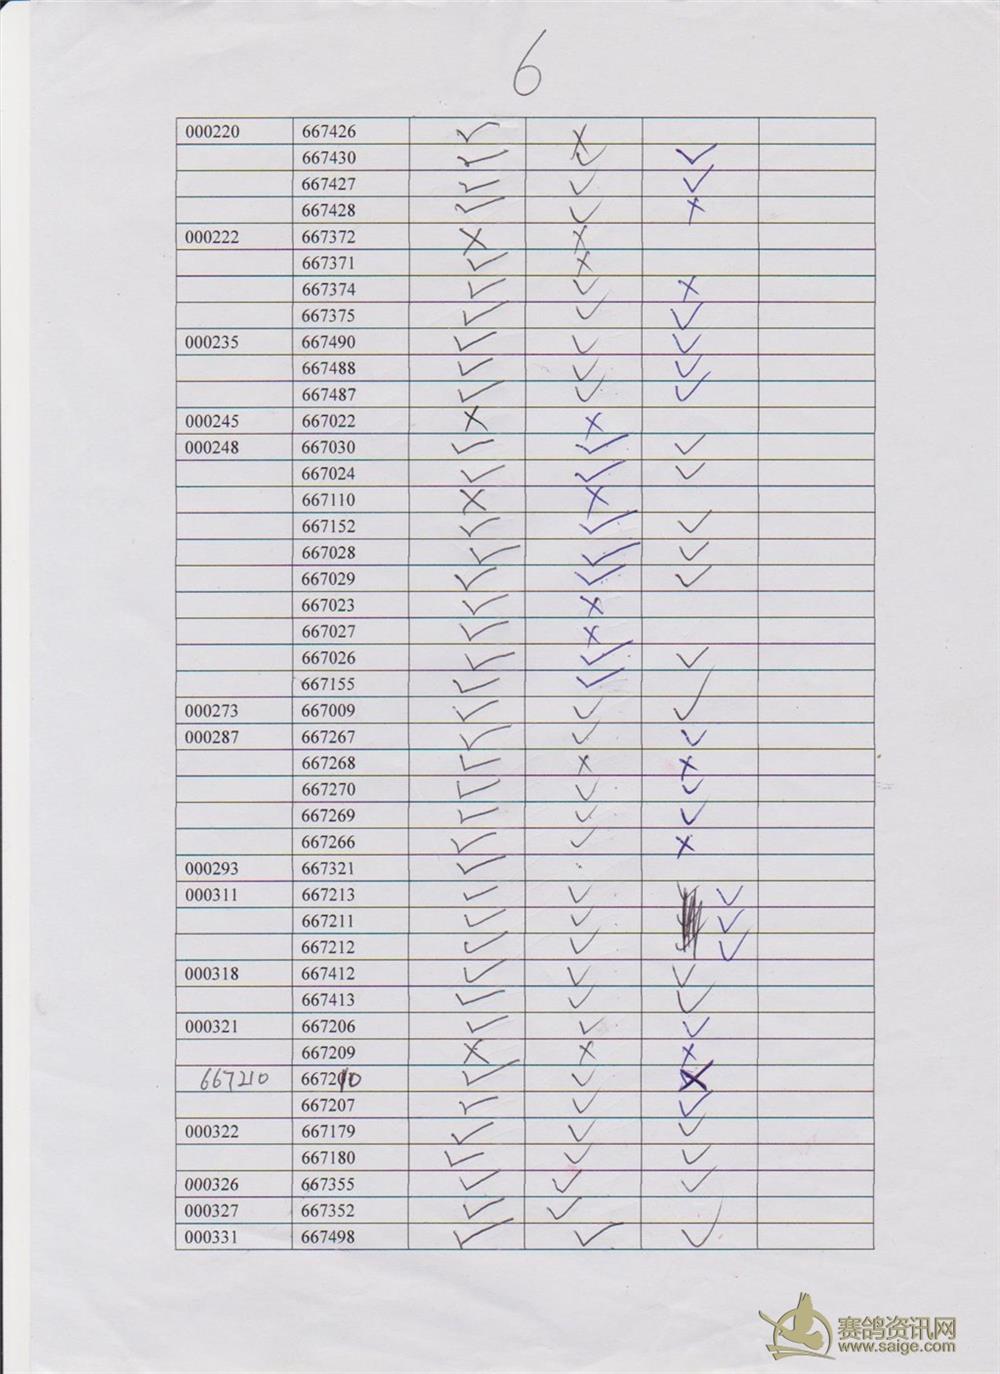 6
000220 667426 ✓ ×
667430 ✓ ✓ ✓
667427 ✓ ✓ ✓
667428 ✓ ✓ ×
000222 667372 × ×
667371 ✓ ×
667374 ✓ ✓ ×
667375 ✓ ✓ ✓
000235 667490 ✓ ✓ ✓
667488 ✓ ✓ ✓
667487 ✓ ✓ ✓
000245 667022 × ×
000248 667030 ✓ ✓ ✓
667024 ✓ ✓ ✓
667110 × ×
667152 ✓ ✓ ✓
667028 ✓ ✓ ✓
667029 ✓ ✓ ✓
667023 ✓ ×
667027 ✓ ×
667026 ✓ ✓ ✓
667155 ✓ ✓
000273 667009 ✓ ✓ ✓
000287 667267 ✓ ✓ ✓
667268 ✓ × ×
667270 ✓ ✓ ✓
667269 ✓ ✓ ✓
667266 ✓ ✓ ×
000293 667321 ✓
000311 667213 ✓ ✓ ✓
667211 ✓ ✓ ✓
667212 ✓ ✓ ✓
000318 667412 ✓ ✓ ✓
667413 ✓ ✓ ✓
000321 667206 ✓ ✓ ✓
667209 × × ×
667210 667210 ✓ ✓ ×
667207 ✓ ✓ ✓
000322 667179 ✓ ✓ ✓
667180 ✓ ✓ ✓
000326 667355 ✓ ✓ ✓
000327 667352 ✓ ✓
000331 667498 ✓ ✓ ✓
赛鸽资讯网
www.saige.com